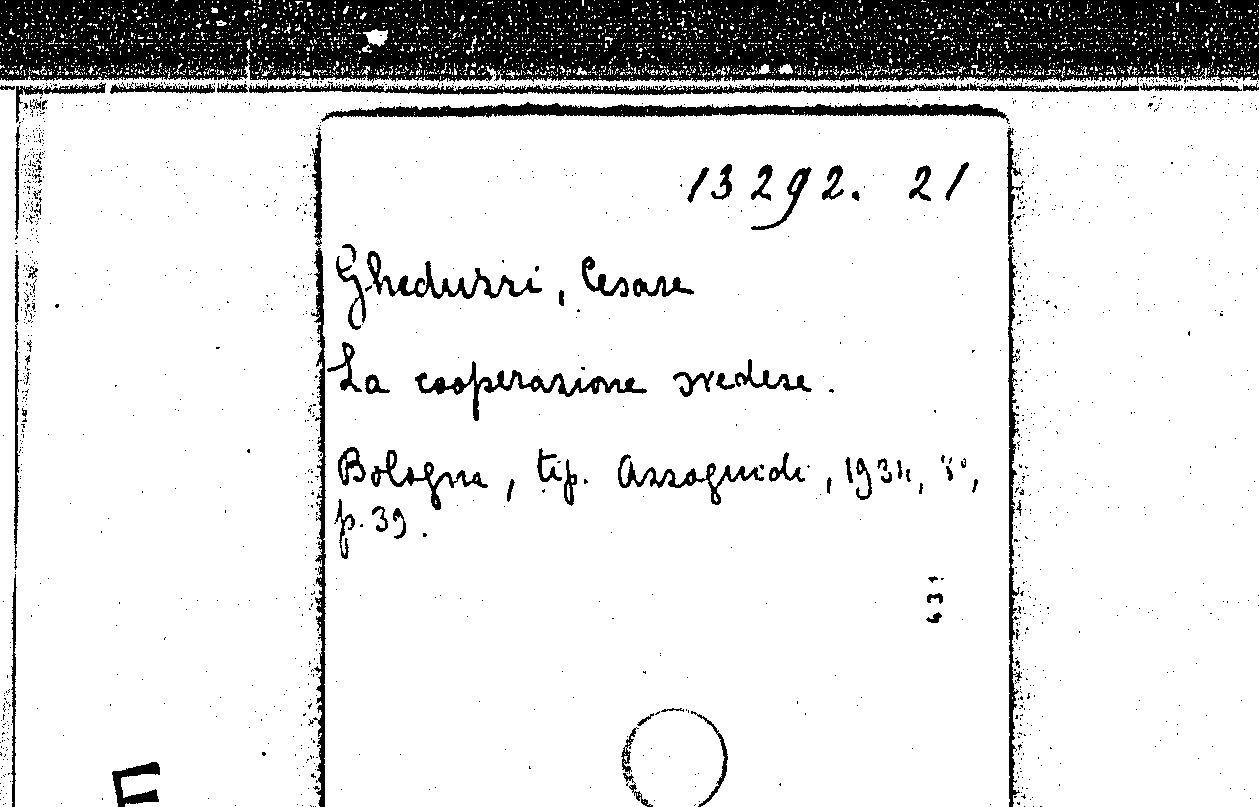 13292. 21
Gheduzzi, Cesare
La cooperazione svedese.
Bologna, tip. Azzoguidi, 1934, 8°,
p. 39.